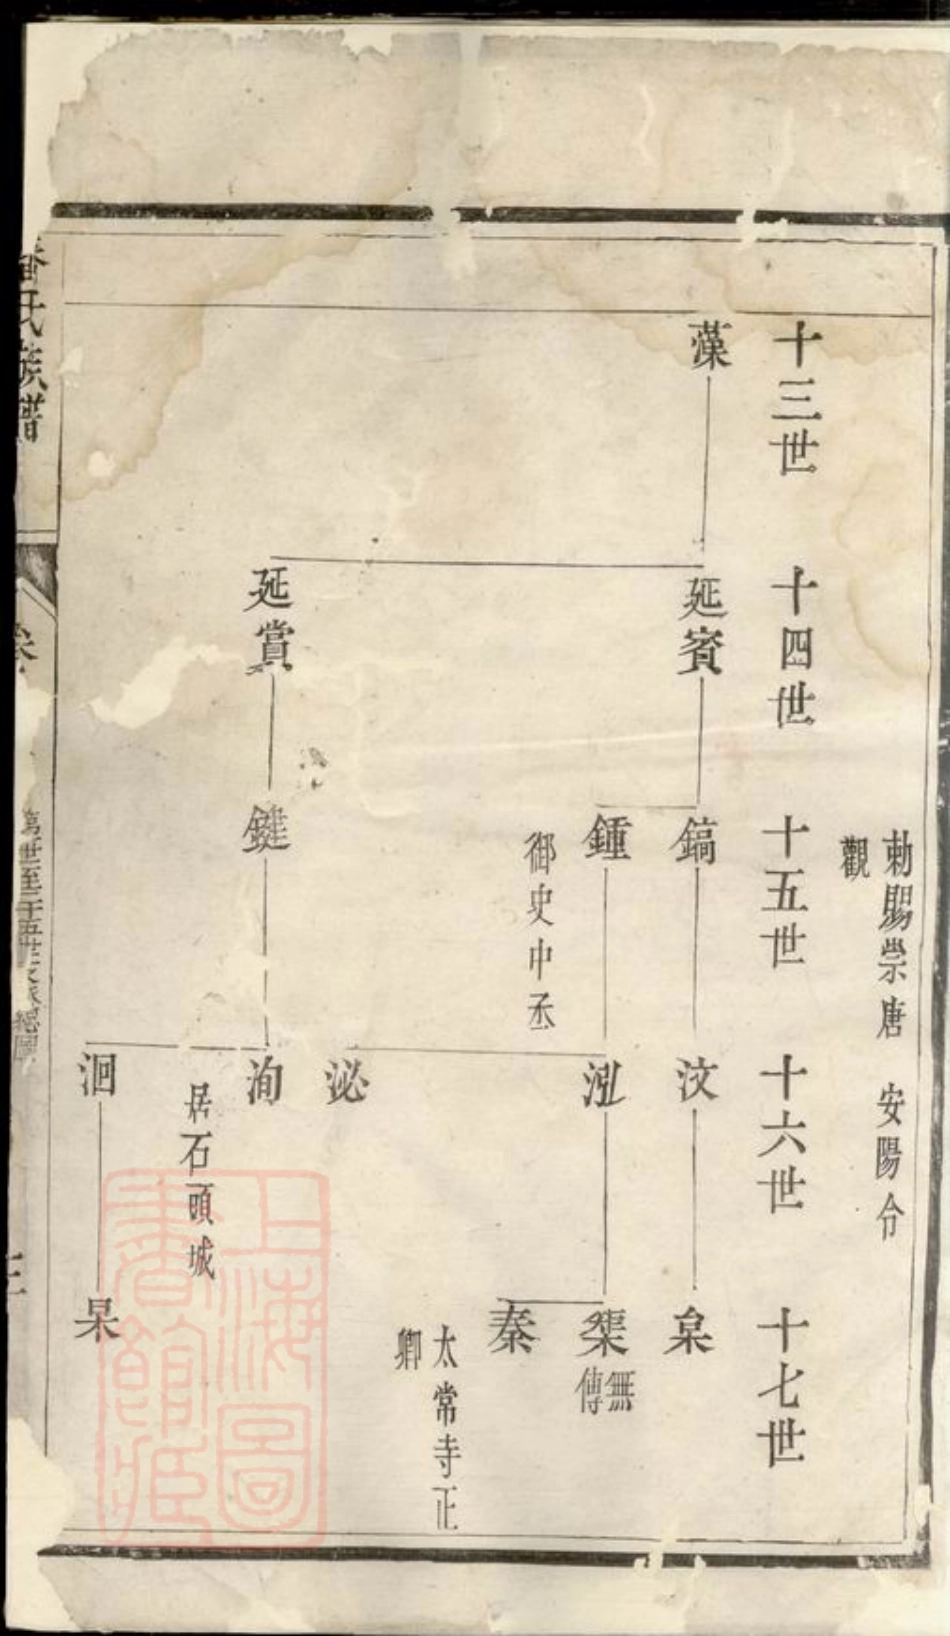 勅賜崇唐
觀
安陽令
十三世
十四世
十五世
十六世
十七世
藻
延賓
鎬
汶
臬
鍾
泓
榘
無傳
御史中丞
秦
太常寺正
卿
泌
延賞
鍵
洵
居石頭城
洄
杲
潘氏族譜
卷
總圖
三
上海圖
書館藏